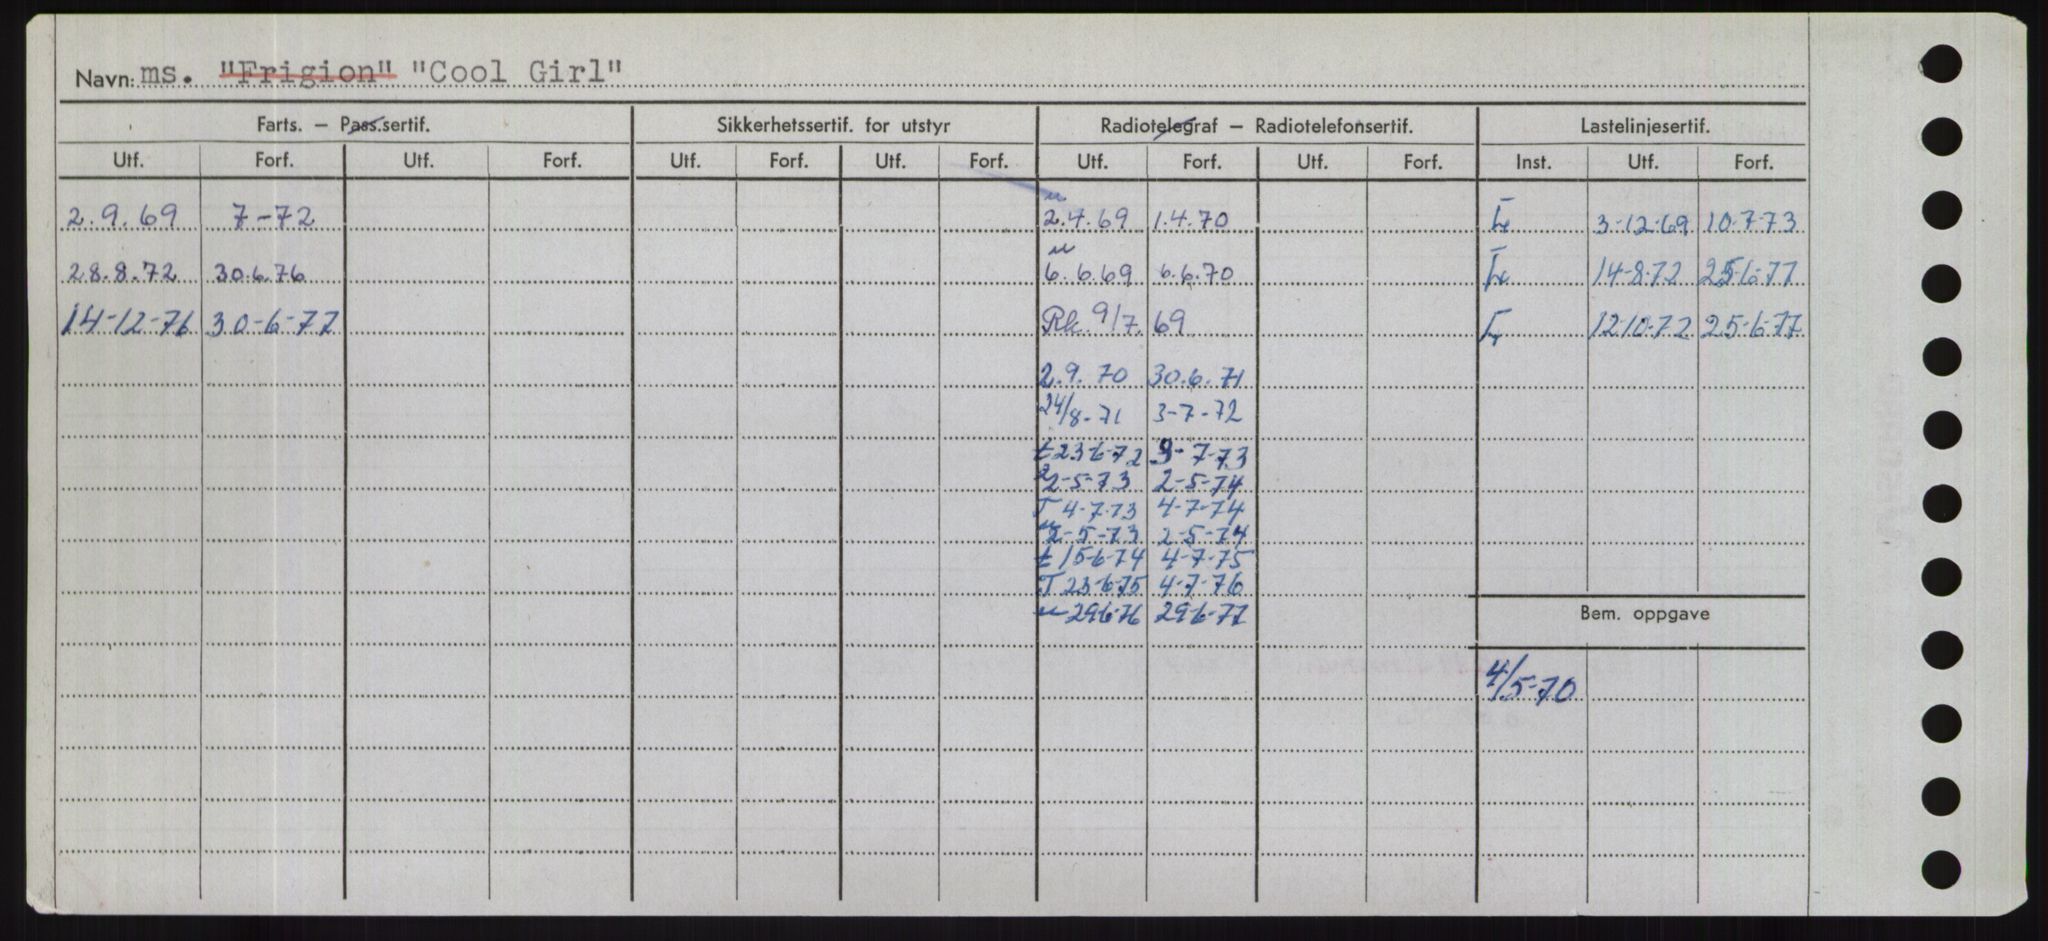 Navn: ms. "Frigion" "Cool Girl"
Farts. – Pass.sertif. Sikkerhetssertif. for utstyr Radiotelegraf – Radiotelefonsertif. Lastelinjesertif.
Utf. Forf. Utf. Forf. Utf. Forf. Utf. Forf. Utf. Forf. Utf. Forf. Inst. Utf. Forf.
2.9.69 7-72 2.4.69 1.4.70 3-12-69 10-7-73
28.8.72 30.6.76 6.6.69 6.6.70 14-8-72 25-6-77
14-12-76 30-6-77 Rk. 9/7. 69 12-10-72 25-6-77
2.9.70 30.6.71
24/8-71 3-7-72
t 23-6-72 3-7-73
2-5-73 2-5-74
T 4-7-73 4-7-74
2-5-73 2-5-74
t 15-6-74 4-7-75
T 23-6-75 4-7-76
29-6-76 29-6-77
Bem. oppgave
4/5-70